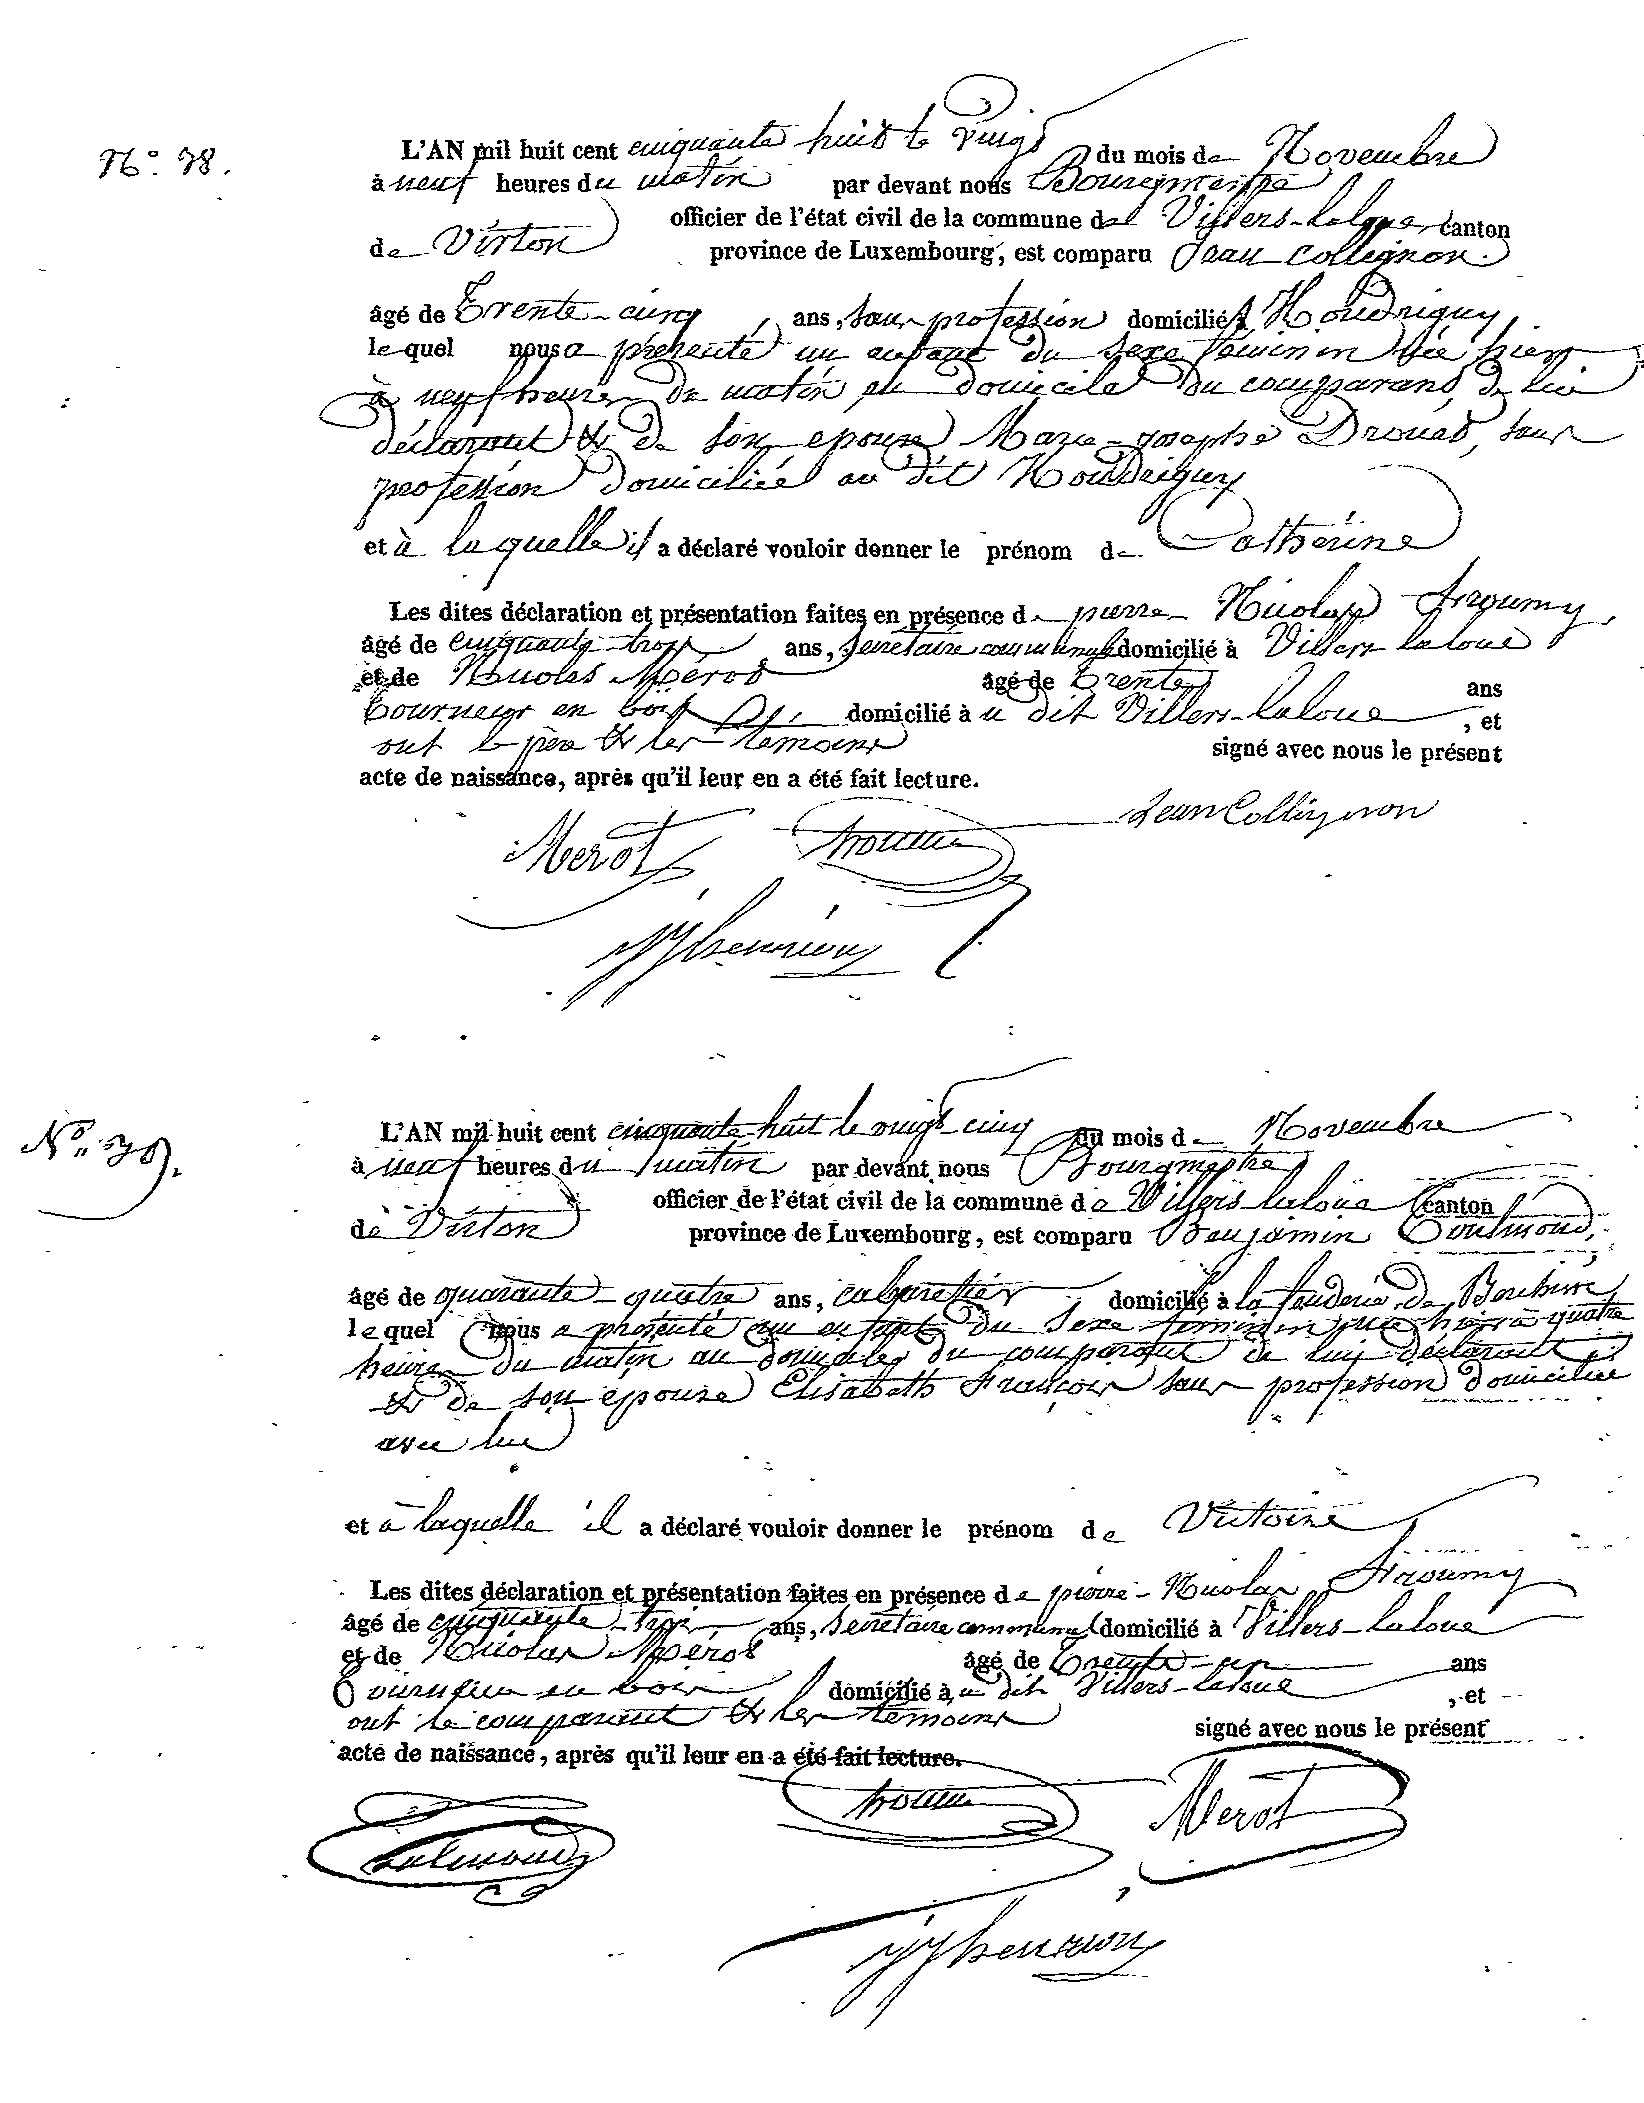 N° 38.
L'AN mil huit cent cinquante huit le vingt du mois de Novembre
à neuf heures du matin par devant nous Bourgmestre
officier de l'état civil de la commune de Villers-laloue, canton
de Virton province de Luxembourg, est comparu Jean Collignon.
âgé de Trente-cinq ans, sans profession domicilié à Houdrigny,
le quel nous a présenté un enfant du sexe féminin née hier
à neuf heures du matin au domicile du comparant, de lui
déclarant & de son épouse Marie-Josephe Drouet, sans
profession domiciliée au dit Houdrigny
et à laquelle il a déclaré vouloir donner le prénom de Cathérine
Les dites déclaration et présentation faites en présence de pierre Nicolas
âgé de cinquante-trois ans, secrétaire communal domicilié à Villers-laloue
et de Nicolas Mérot âgé de Trente ans
tourneur en bois domicilié à u dit Villers-laloue, et
ont le père & les témoins signé avec nous le présent
acte de naissance, après qu'il leur en a été fait lecture.
Jean Collignon
Merot
jjhenrion
N° 39.
L'AN mil huit cent cinquante-huit le vingt-cinq du mois de Novembre
à neuf heures du matin par devant nous Bourgmestre
officier de l'état civil de la commune de Villers-laloue canton
de Virton province de Luxembourg, est comparu Benjamin
âgé de quarante-quatre ans, cabaretier domicilié à la fenderie de
le quel nous a présenté un enfant du sexe féminin née hier à quatre
heures du matin au domicile du comparant de lui déclarant
& de son épouse Elisabeth François sans profession domiciliée
avec lui
et à laquelle il a déclaré vouloir donner le prénom de Victoire
Les dites déclaration et présentation faites en présence de pierre-Nicolas
âgé de cinquante-trois ans, secrétaire communal domicilié à Villers-laloue
et de Nicolas Mérot âgé de Trente-un ans
tourneur en bois domicilié à u dit Villers-laloue, et
ont le comparant & les témoins signé avec nous le présent
acte de naissance, après qu'il leur en a été fait lecture.
Merot
jjhenrion